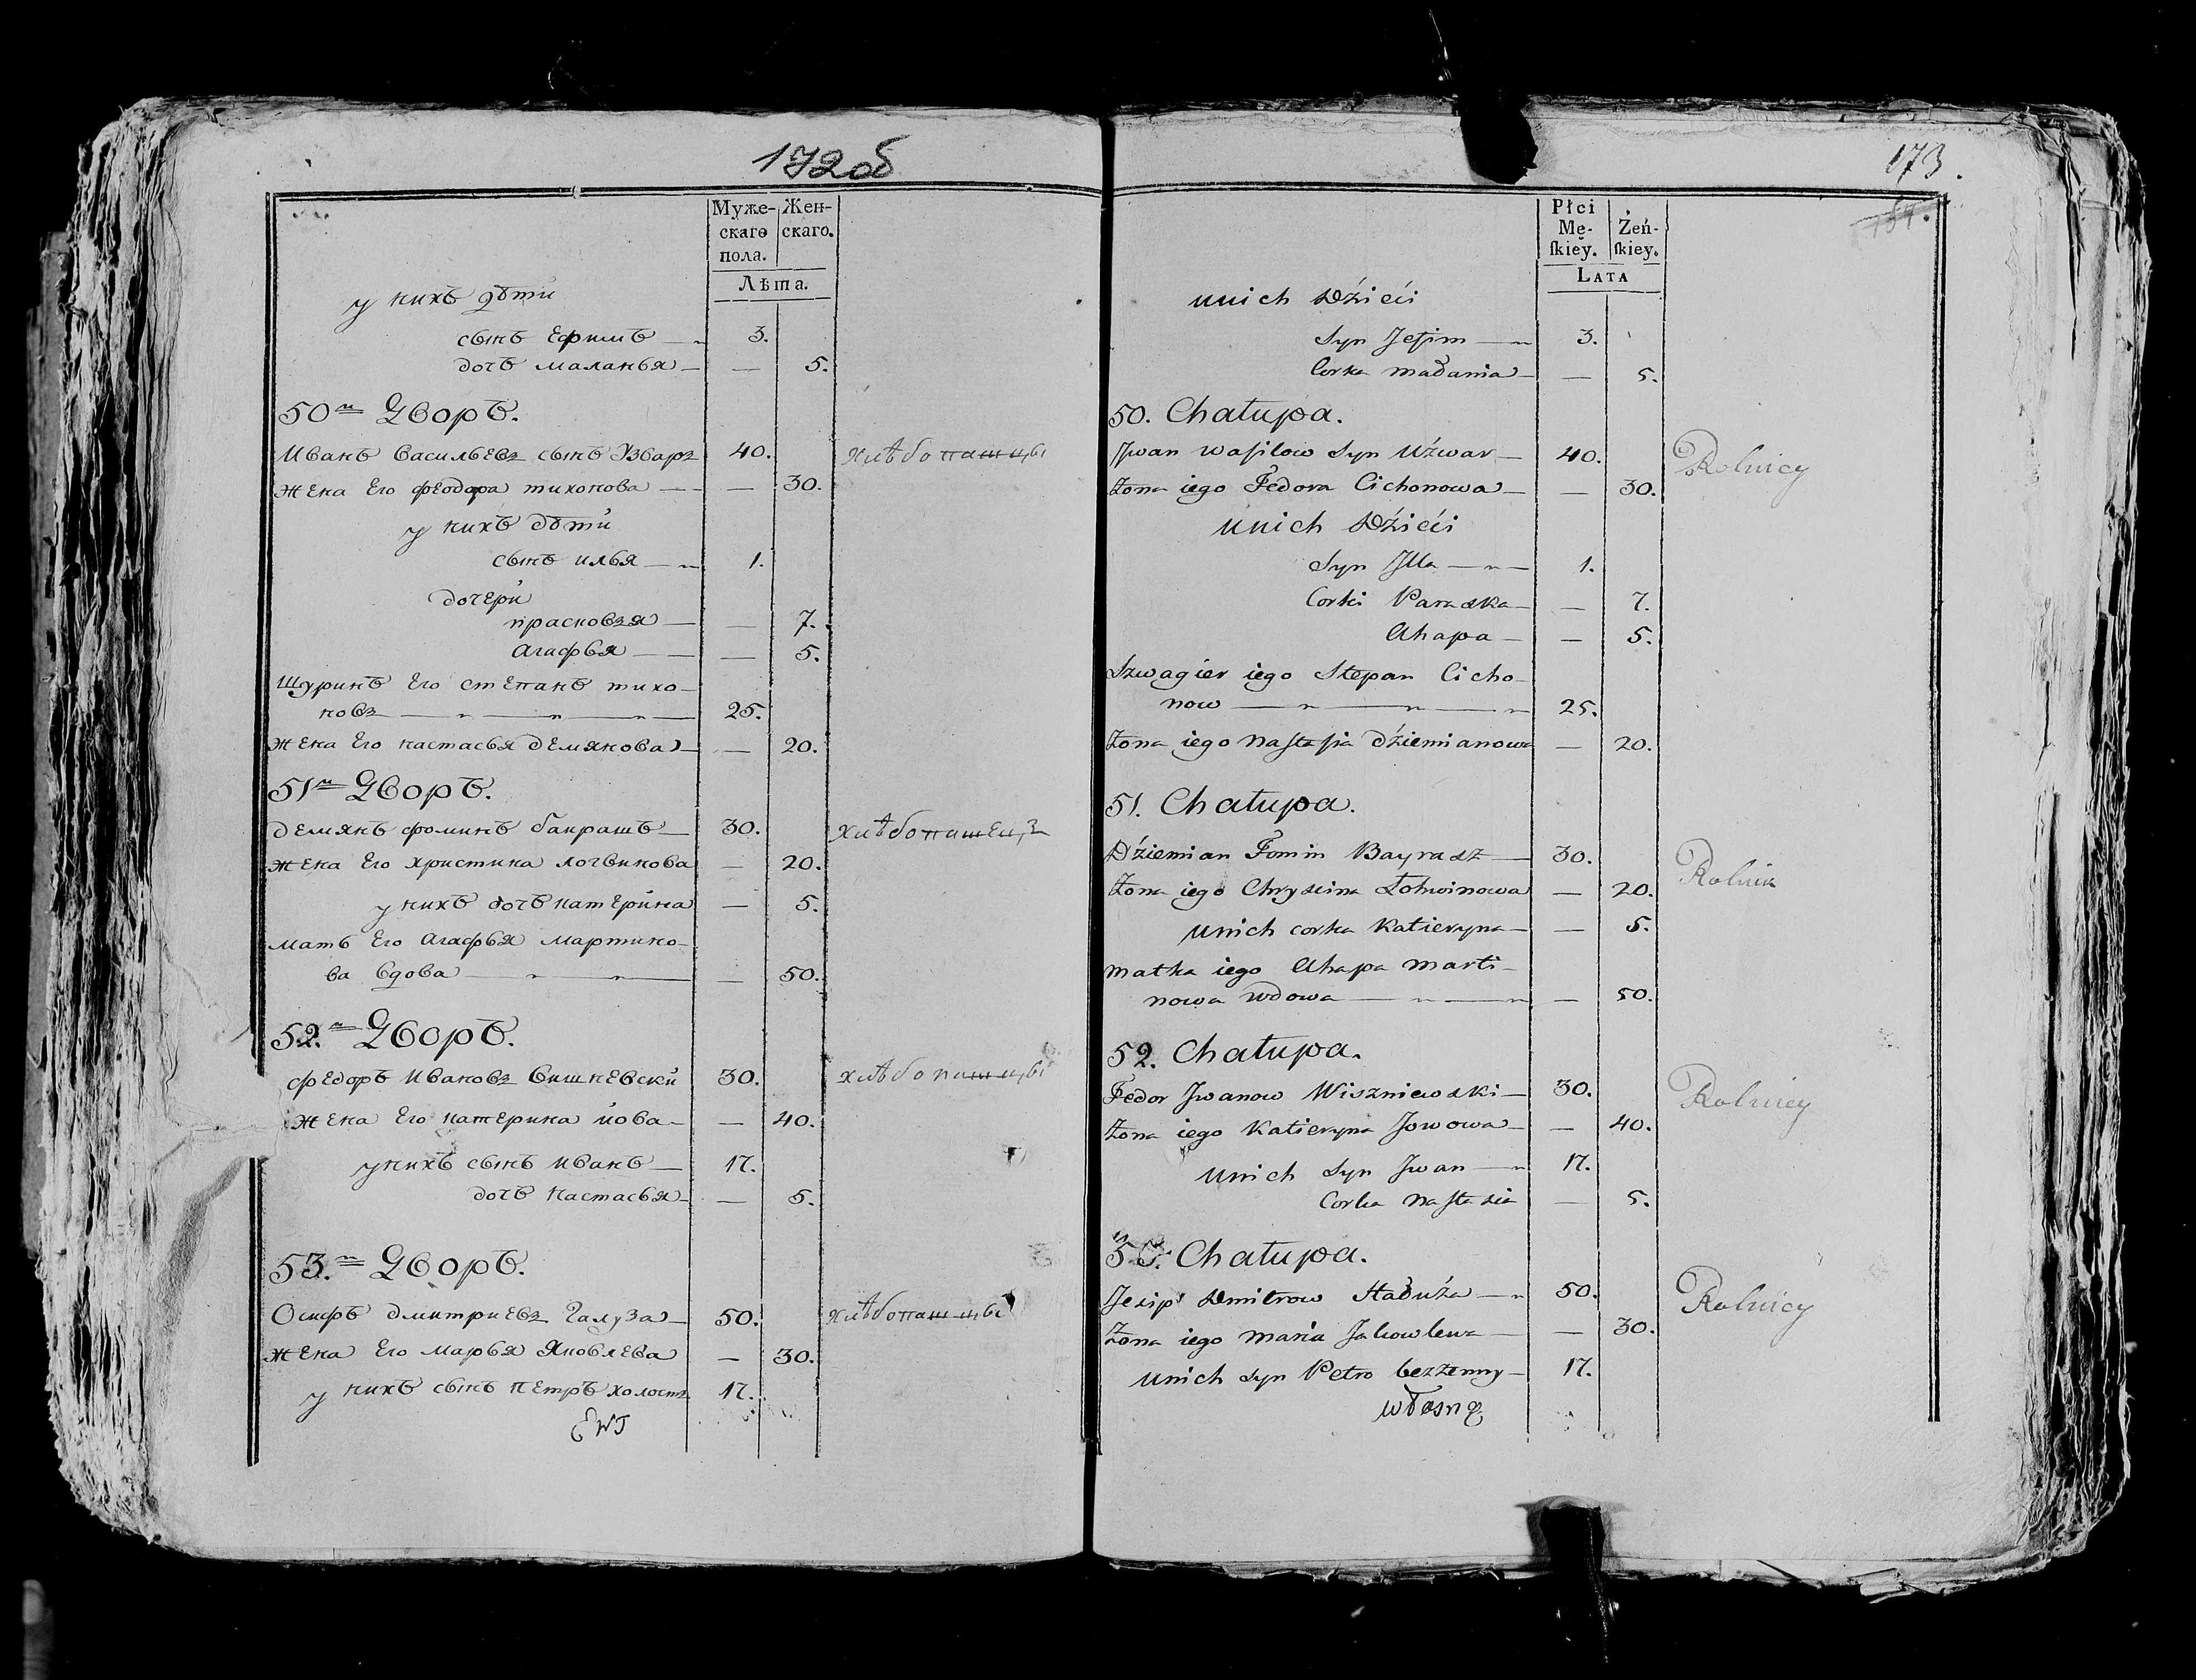 172об
Муже-
скаго
пола.
Жен-
скаго.
Лѣта.
у нихъ дѣти
сынъ Ефимъ 3.
дочъ маланья — 5.
50й Дворъ.
Иванъ Васильевъ сынъ Узваръ 40. хлѣбопашцы
жена Его феодора тихонова — 30.
у нихъ дѣти
сынъ илья 1.
дочери
прасковья — 7.
Агафья — 5.
Шуринъ Его степанъ тихо-
новъ 25.
жена Его настасья демянова — 20.
51й Дворъ.
демянъ фоминъ баирашъ 30. хлѣбопашецъ
жена Его христина логвинова — 20.
у нихъ дочъ катерина — 5.
мать Его Агафья мартино-
ва вдова — 50.
52.й Дворъ.
федоръ Ивановъ Вишневски 30. хлѣбопашцы
жена Его катерина иова — 40.
у нихъ сынъ иванъ 17.
дочъ настасья — 5.
53.й Дворъ.
Осифъ дмитриевъ Галуза 50. хлѣбопашцы
жена Его марья Яковлева — 30.
у нихъ сынъ петръ холостъ 17.
173.
Płci
Mę-
ſkiey.
Żeń-
ſkiey.
LATA
unich Dźieći
Syn Jefim 3.
Corka madania — 5.
50. Chałupa.
Jwan wasilow Syn Uźwar 40. Rolnicy
Żona iego Fedora Cichonowa — 30.
unich Dźieći
Syn Jlla 1.
Corki Paraska — 7.
Ahapa — 5.
Szwagier iego Stepan Cicho-
now 25.
Żona iego Nastasia dźiemianowa — 20.
51. Chałupa.
Dźiemian Fomin Bayrasz 30. Rolnik
Żona iego Chryscina Łohwinowa — 20.
unich corka Katieryna — 5.
matka iego Ahapa marti-
nowa wdowa — 50.
52. Chałupa.
Fedor Jwanow Wiszniewski 30. Rolnicy
Żona iego Katieryna Jowowa — 40.
unich Syn Jwan 17.
Corka nastasia — 5.
53. Chałupa.
Jesip Dmitrow Hałuźa 50. Rolnicy
Żona iego maria Jakowlewa — 30.
unich syn Petro bezżenny 17.